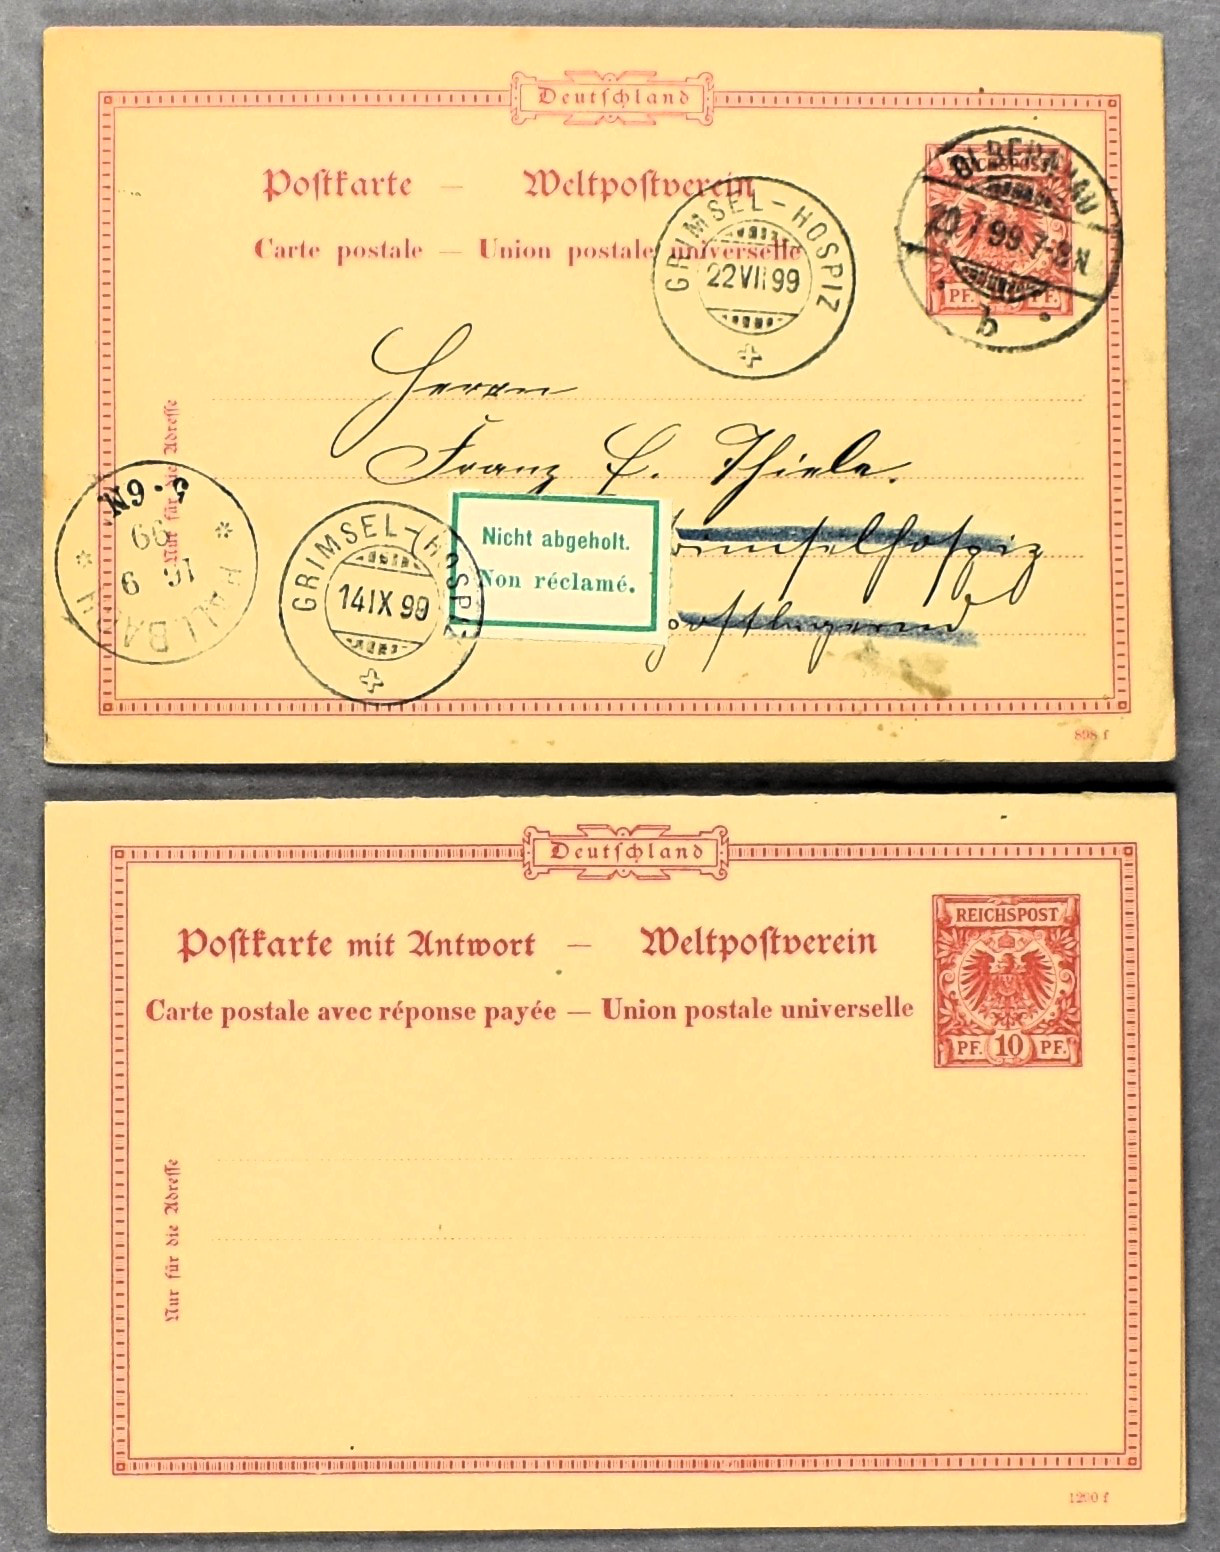 Deutschland
Postkarte — Weltpostverein
Carte postale — Union postale universelle
REICHSPOST
PF. PF.
OLBERNHAU
20.7.99.7-8N.
b
GRIMSEL-HOSPIZ
22 VII 99
Herrn
Franz E. Thiele.
Grimselhospiz
postlagernd
Nicht abgeholt.
Non réclamé.
Nur für die Adresse
GRIMSEL-HOSPIZ
14 IX 99
5-6N
99
16 9
898 f
Deutschland
Postkarte mit Antwort — Weltpostverein
Carte postale avec réponse payée — Union postale universelle
REICHSPOST
PF. 10 PF.
Nur für die Adresse
1290 f